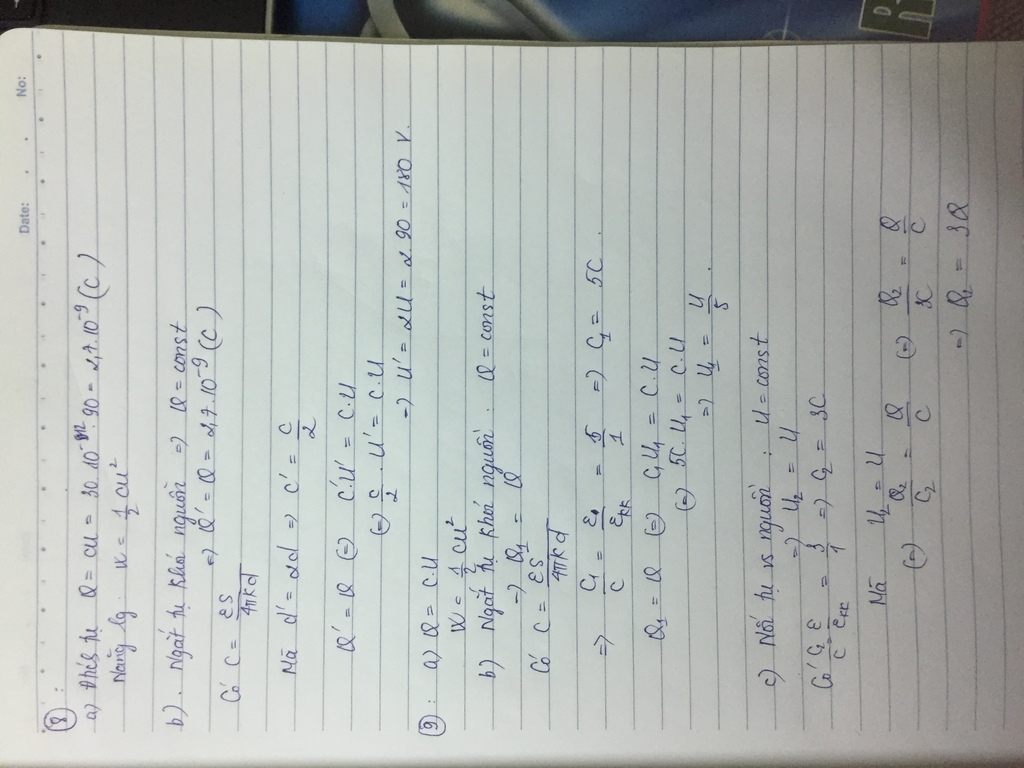 No:
Date: . .
8 :
a) Điện tụ Q = CU = 30.10⁻¹².90 = 2,7.10⁻⁹ (C)
Năng lg : W = 1/2 CU²
b). Ngắt tụ khỏi nguồn => Q = const
=> Q' = Q = 2,7.10⁻⁹ (C)
Có C = εS/4πKd
Mà d' = 2d => C' = C/2
Q' = Q (=) C'U' = C.U
(=) C/2 . U' = C.U
=> U' = 2U = 2 90 = 180 V.
9 : a) Q = C.U
W = 1/2 CU²
b) Ngắt tụ khỏi nguồn : Q = const
=> Q₁ = Q
Có C = εS/4πKd
=> C₁/C = ε/εkk = 5/1 => C₁ = 5C .
Q₁ = Q (=) C₁U₁ = C.U
(=) 5C.U₁ = C.U
=> U₁ = U/5 .
c) Nối tụ vs nguồn : U = const
=> U₂ = U
Có C₂/C = ε/εkk = 3/1 => C₂ = 3C
Mà U₂ = U
(=) Q₂/C₂ = Q/C (=) Q₂/3C = Q/C
=> Q₂ = 3Q